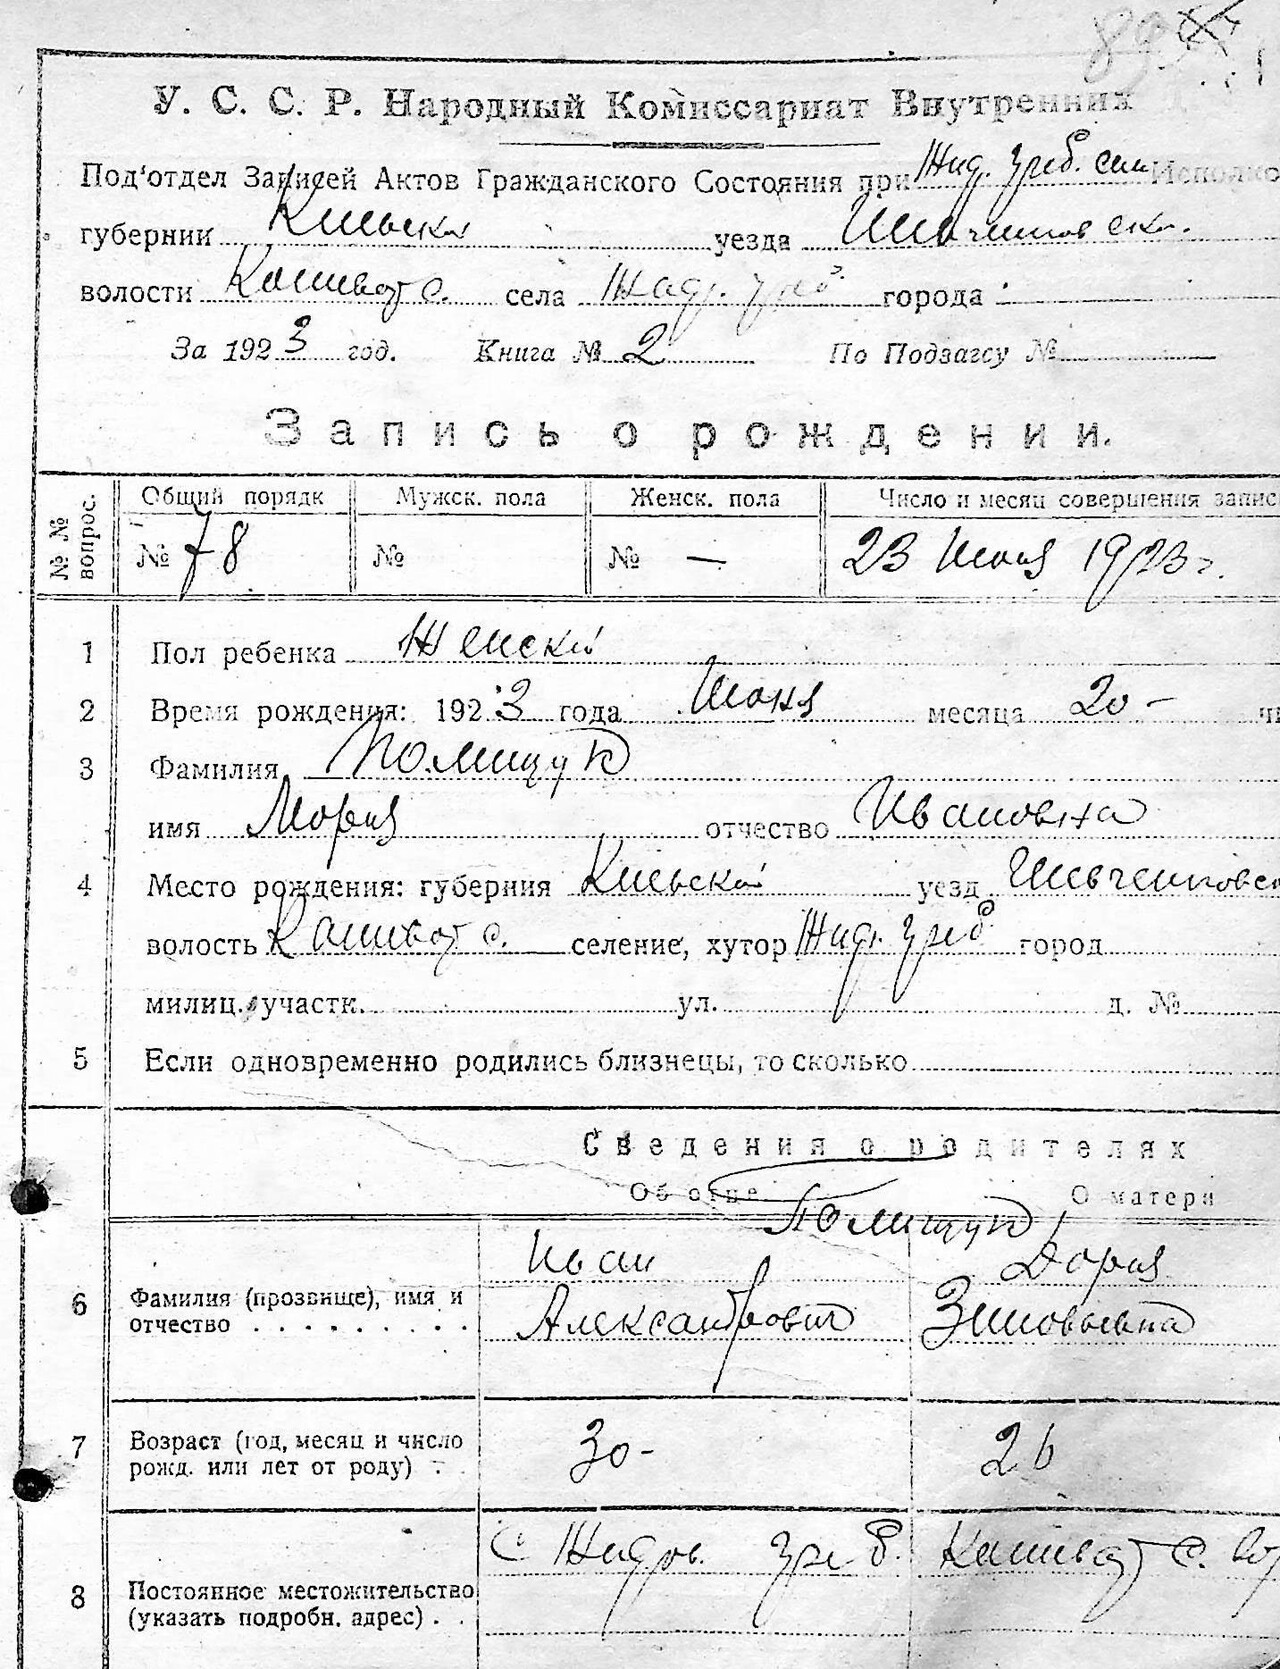 У. С. С. Р. Народный Комиссариат Внутренних
Под'отдел Записей Актов Гражданского Состояния при Жид. Греб. сел Исполко
губернии Киевска уезда Шевченковска.
волости Кошеват с. села Жид. Греб города
За 1923 год. Книга № 2 По Подзагсу №
Запись о рождении.
№ № вопрос. Общий порядк Мужск. пола Женск. пола Число и месяц совершения запис
№ 78 № № — 23 Июня 1923 г.
1 Пол ребенка Женский
2 Время рождения: 1923 года Июня месяца 20 –
3 Фамилия Полищук
имя Мория отчество Ивановна
4 Место рождения: губерния Киевской уезд Шевченковск
волость Кошеват с. селение, хутор Жид. Греб город
милиц. участк. ул. д. №
5 Если одновременно родились близнецы, то сколько
Сведения о родителях
Об отце О матери
Полищук
6 Фамилия (прозвище), имя и отчество Иван Александрович Дория Зиновьевна
7 Возраст (год, месяц и число рожд. или лет от роду) 30 – 26
8 Постоянное местожительство (указать подробн. адрес) С Жидов. Греб. Кошеват с.